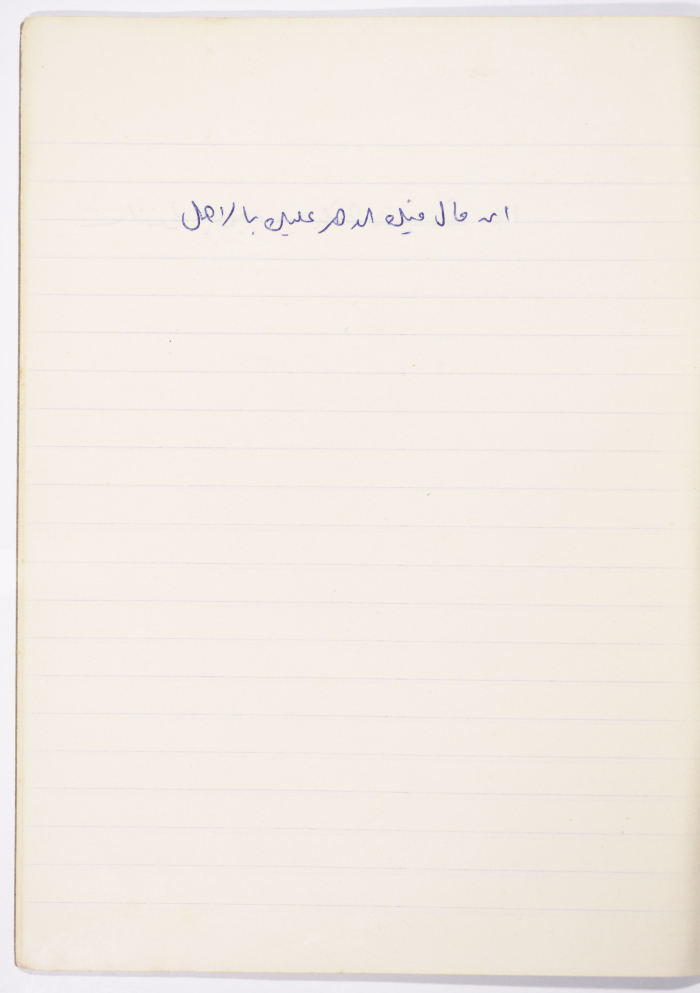 ان مال فيك الدهر عليك بالاصل